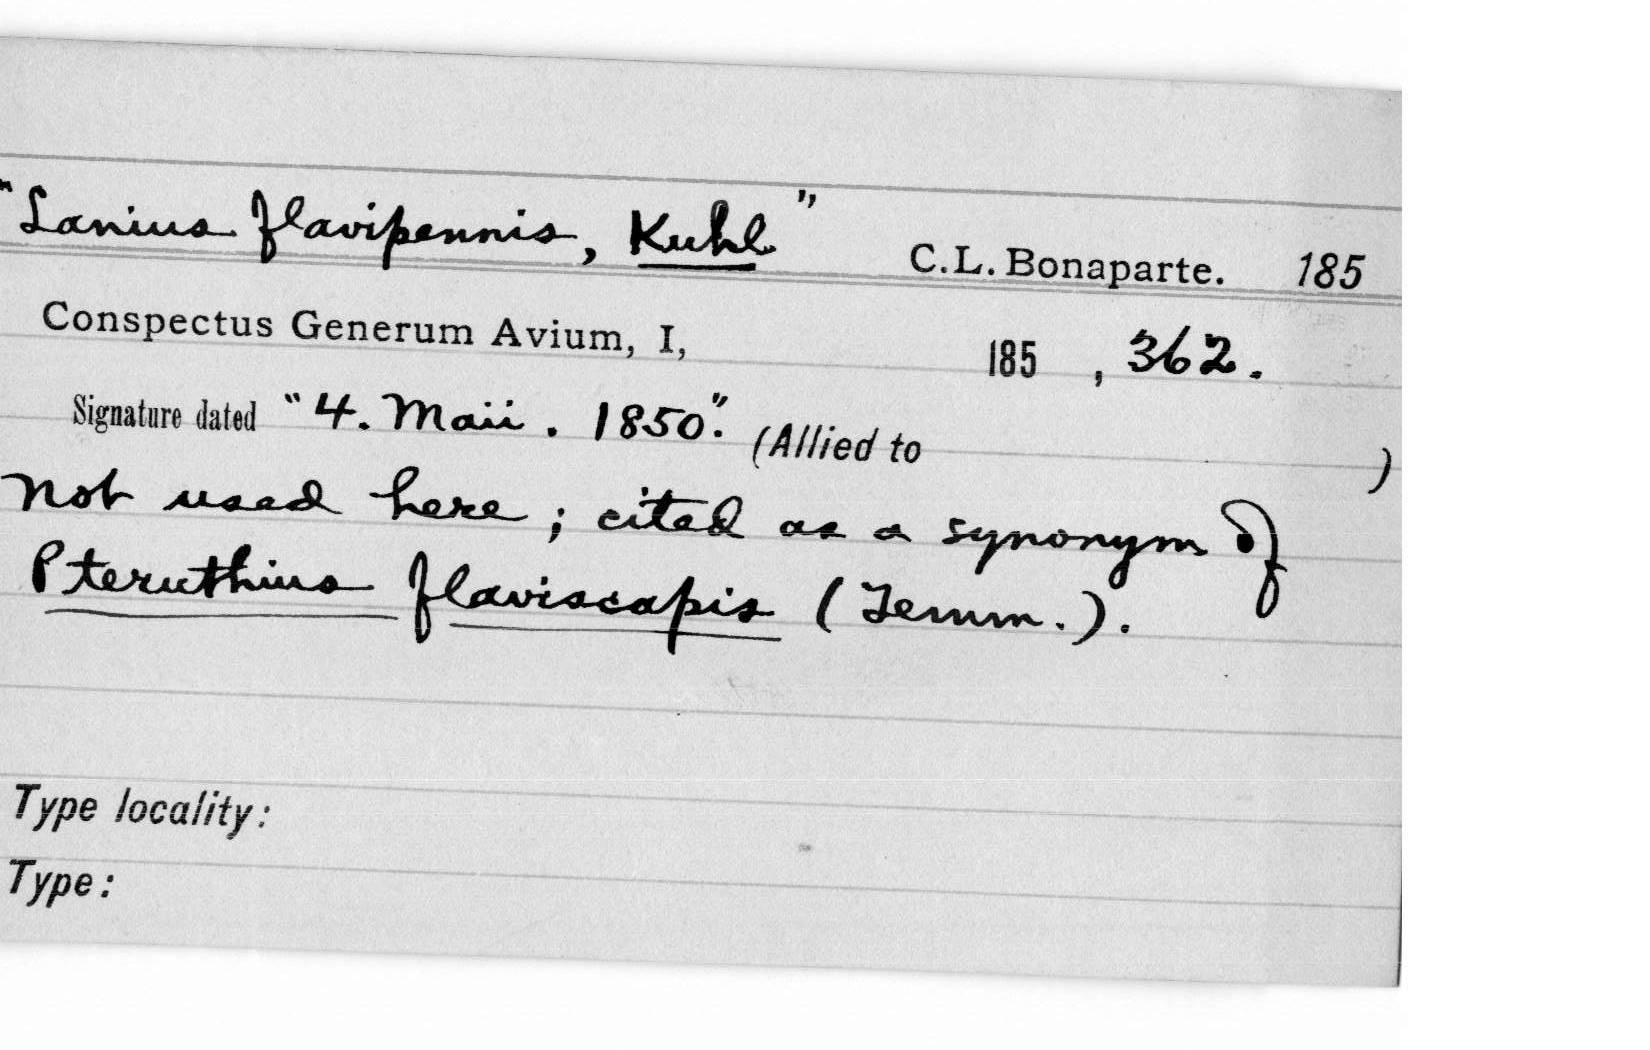 "Lanius flavipennis, Kuhl" C.L. Bonaparte. 185
Conspectus Generum Avium, I, 185 , 362.
Signature dated "4. Maii. 1850". (Allied to )
Not used here; cited as a synonym of
Pteruthius flaviscapis (Temm.).
Type locality:
Type: